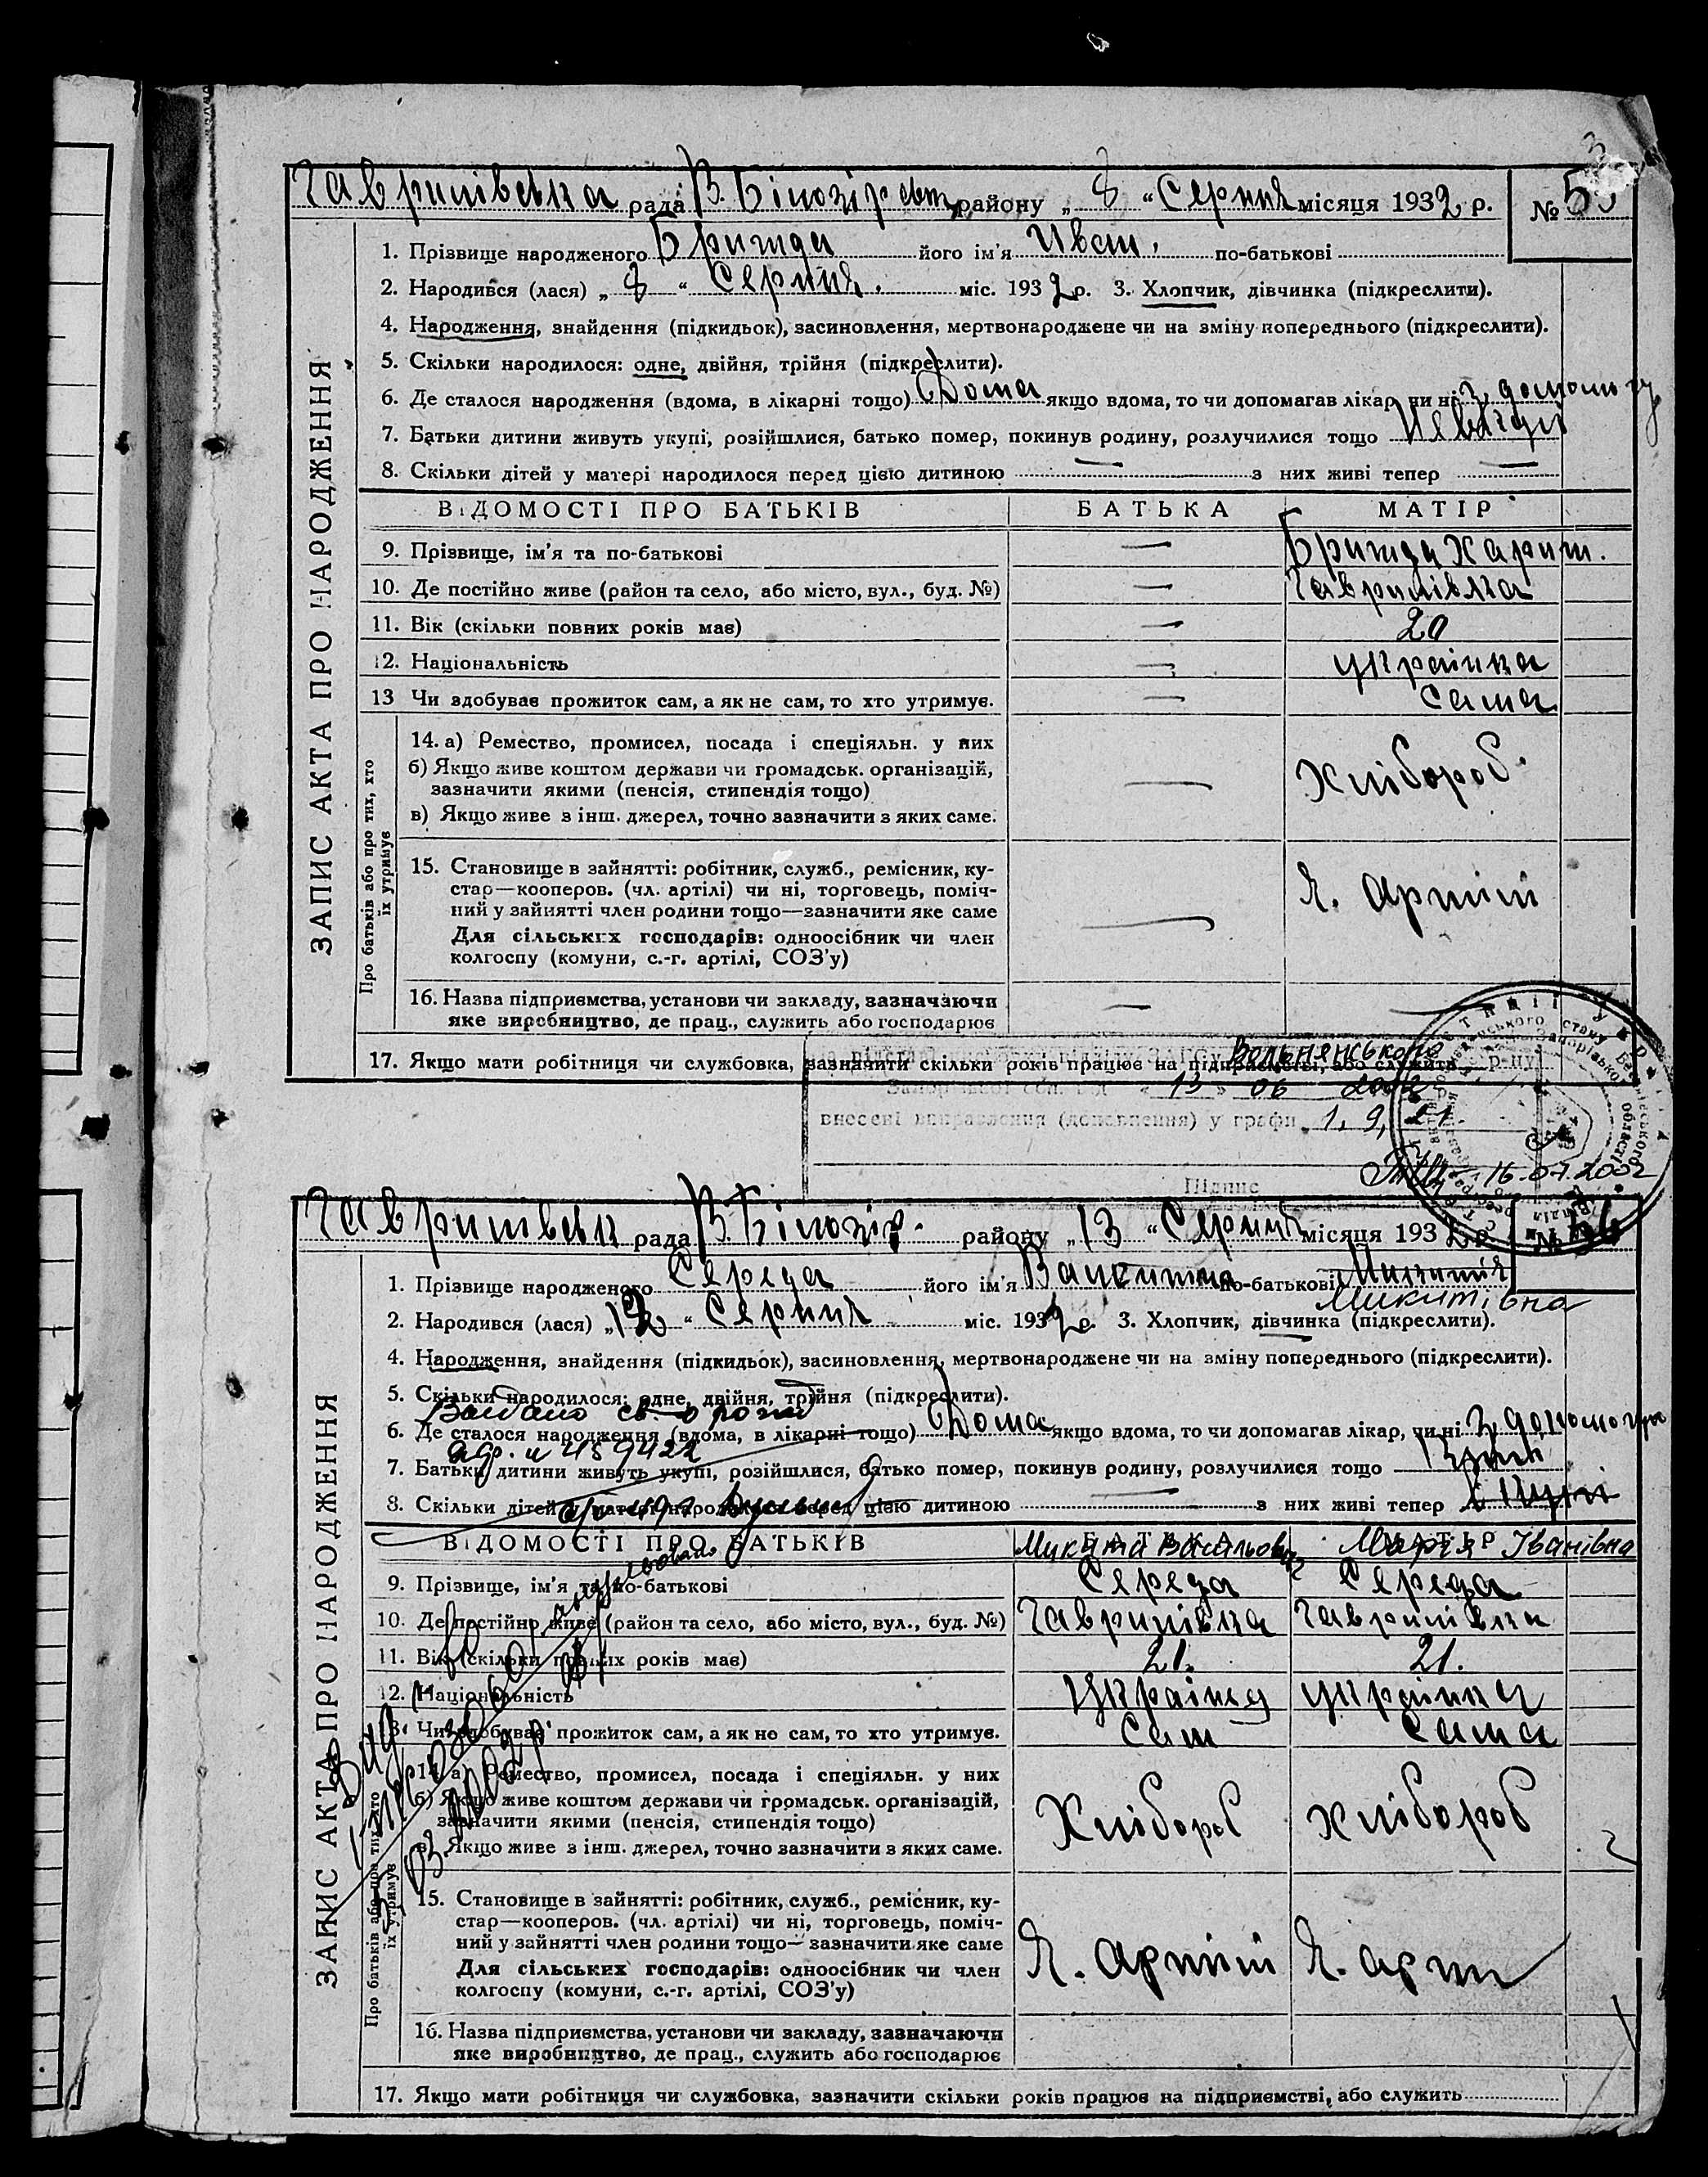 Гаврилівська рада В. Білозірськ району „ 8 “ Серпня місяця 1932 р. №
ЗАПИС АКТА ПРО НАРОДЖЕННЯ
1. Прізвище народженого його ім'я Иван. по-батькові
2. Народився (лася) „ 8 “ Серпня. міс. 1932 р. 3. Хлопчик, дівчинка (підкреслити).
4. Народження, знайдення (підкидьок), засиновлення, мертвонароджене чи на зміну попереднього (підкреслити).
5. Скільки народилося: одне, двійня, трійня (підкреслити).
6. Де сталося народження (вдома, в лікарні тощо) Дома якщо вдома, то чи допомагав лікар, чи ні
7. Батьки дитини живуть укупі, розійшлися, батько помер, покинув родину, розлучилися тощо
8. Скільки дітей у матері народилося перед цією дитиною — з них живі тепер —
ВІДОМОСТІ ПРО БАТЬКІВ БАТЬКА МАТІР
9. Прізвище, ім'я та по-батькові —
10. Де постійно живе (район та село, або місто, вул., буд. №) — Гаврилівка
11. Вік (скільки повних років має) — 20
12. Національність — українка
13 Чи здобуває прожиток сам, а як не сам, то хто утримує. — Сама
Про батьків або про тих, хто їх утримує
14. а) Ремество, промисел, посада і спеціяльн. у них
б) Якщо живе коштом держави чи громадськ. організацій,
зазначити якими (пенсія, стипендія тощо) — Хлібороб.
в) Якщо живе з інш. джерел, точно зазначити з яких саме.
15. Становище в зайнятті: робітник, служб., ремісник, ку-
стар—кооперов. (чл. артілі) чи ні, торговець, поміч-
ний у зайнятті член родини тощо—зазначити яке саме — Ч. артілі
Для сільських господарів: одноосібник чи член
колгоспу (комуни, с.-г. артілі, СОЗ'у)
16. Назва підприємства, установи чи закладу, зазначаючи —
яке виробництво, де прац., служить або господарює
17. Якщо мати робітниця чи службовка, зазначити скільки років працює на підприємстві, або служить
Вольнянського р-ну
Запорізької обл. від « 13 » 06 2002 р.
внесені виправлення (доповнення) у графи 1, 9, 21
Підпис 16.07.2002
Гаврилівськ рада В. Білозір. району „ 13 “ Серпня місяця 1932 р. №
ЗАПИС АКТА ПРО НАРОДЖЕННЯ
1. Прізвище народженого Середа його ім'я Валентина по-батькові
Микитівна
2. Народився (лася) „ 12 “ Серпня міс. 1932 р. 3. Хлопчик, дівчинка (підкреслити).
4. Народження, знайдення (підкидьок), засиновлення, мертвонароджене чи на зміну попереднього (підкреслити).
5. Скільки народилося: одне, двійня, трійня (підкреслити).
6. Де сталося народження (вдома, в лікарні тощо) Дома якщо вдома, то чи допомагав лікар, чи ні
7. Батьки дитини живуть укупі, розійшлися, батько помер, покинув родину, розлучилися тощо
8. Скільки дітей у матері народилося перед цією дитиною — з них живі тепер
ВІДОМОСТІ ПРО БАТЬКІВ БАТЬКА МАТІР
Микита Васильович Марія Іванівна
9. Прізвище, ім'я та по-батькові Середа Середа
10. Де постійно живе (район та село, або місто, вул., буд. №) Гаврилівка Гаврилівка
11. Вік (скільки повних років має) 21. 21.
12. Національність Українец українка
13. Чи здобуває прожиток сам, а як не сам, то хто утримує. Сам Сама
Про батьків або про тих, хто їх утримує
14. а) Ремество, промисел, посада і спеціяльн. у них
б) Якщо живе коштом держави чи громадськ. організацій,
зазначити якими (пенсія, стипендія тощо) Хлібороб Хлібороб
в) Якщо живе з інш. джерел, точно зазначити з яких саме.
15. Становище в зайнятті: робітник, служб., ремісник, ку-
стар—кооперов. (чл. артілі) чи ні, торговець, поміч-
ний у зайнятті член родини тощо—зазначити яке саме Ч. артілі Ч. арті
Для сільських господарів: одноосібник чи член
колгоспу (комуни, с.-г. артілі, СОЗ'у)
16. Назва підприємства, установи чи закладу, зазначаючи
яке виробництво, де прац., служить або господарює
17. Якщо мати робітниця чи службовка, зазначити скільки років працює на підприємстві, або служить